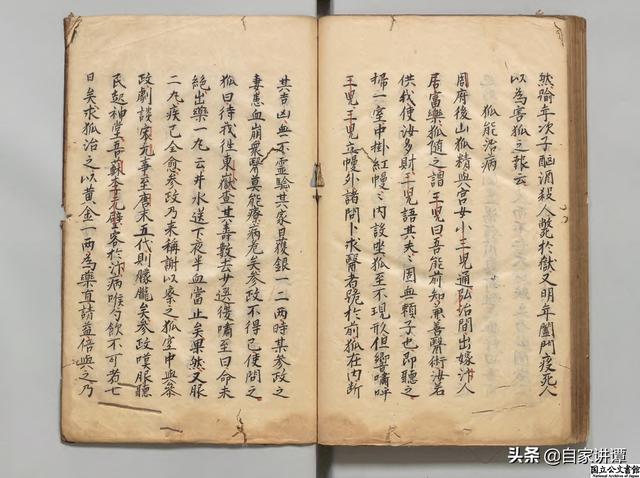 然踰年次子酗酒殺人斃於獄又明年闔門疫死人
以為害狐之報云
狐能治病
周府後山狐精與宮女小三兒通弘治間出嫁汴人
居富樂狐隨之謂三兒曰吾能前知兼善醫術汝若
供我使汝多財三兒語其夫〻固無賴子也即聽之
掃一室中掛紅幔〻內設座狐至不現形但響嘯呼
三兒三兒立幔外諸問卜求醫者跪於前狐在內斷
其吉凶無不靈驗其家日獲銀一二兩時某參政之
妻患血崩眾醫莫能療病危矣參政不得已使問之
狐曰待我往東嶽查其壽數去少選復嘯至曰命未
絕出藥一丸云井水送下夜半血當止矣果然又服
二丸疾已全愈參政乃来稱謝以察之狐空中與參
政劇談宋元事至唐末五代則朦朧矣參政嘆服聽
民起神堂吾朝李元璧客於汴病喉勺飲不可者七
日矣求狐治之以黃金一兩為藥直請益倍與之乃
头条 @自家讲谭
国立公文書館
National Archives of Japan